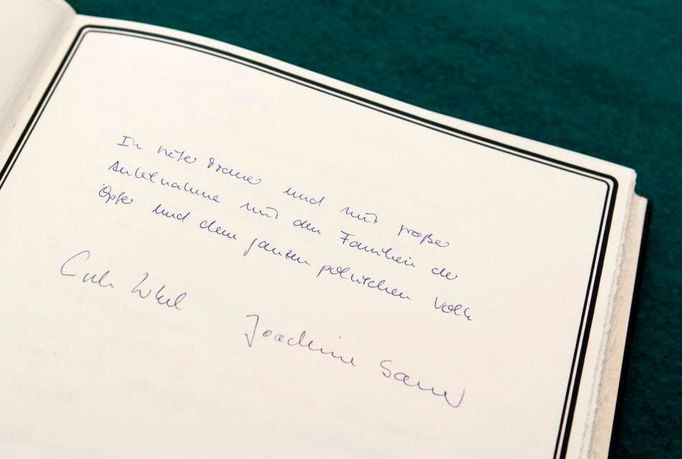 In tiefer Trauer und mit großer
Anteilnahme mit den Familien der
Opfer und dem ganzen polnischen Volk
Joachim Sauer